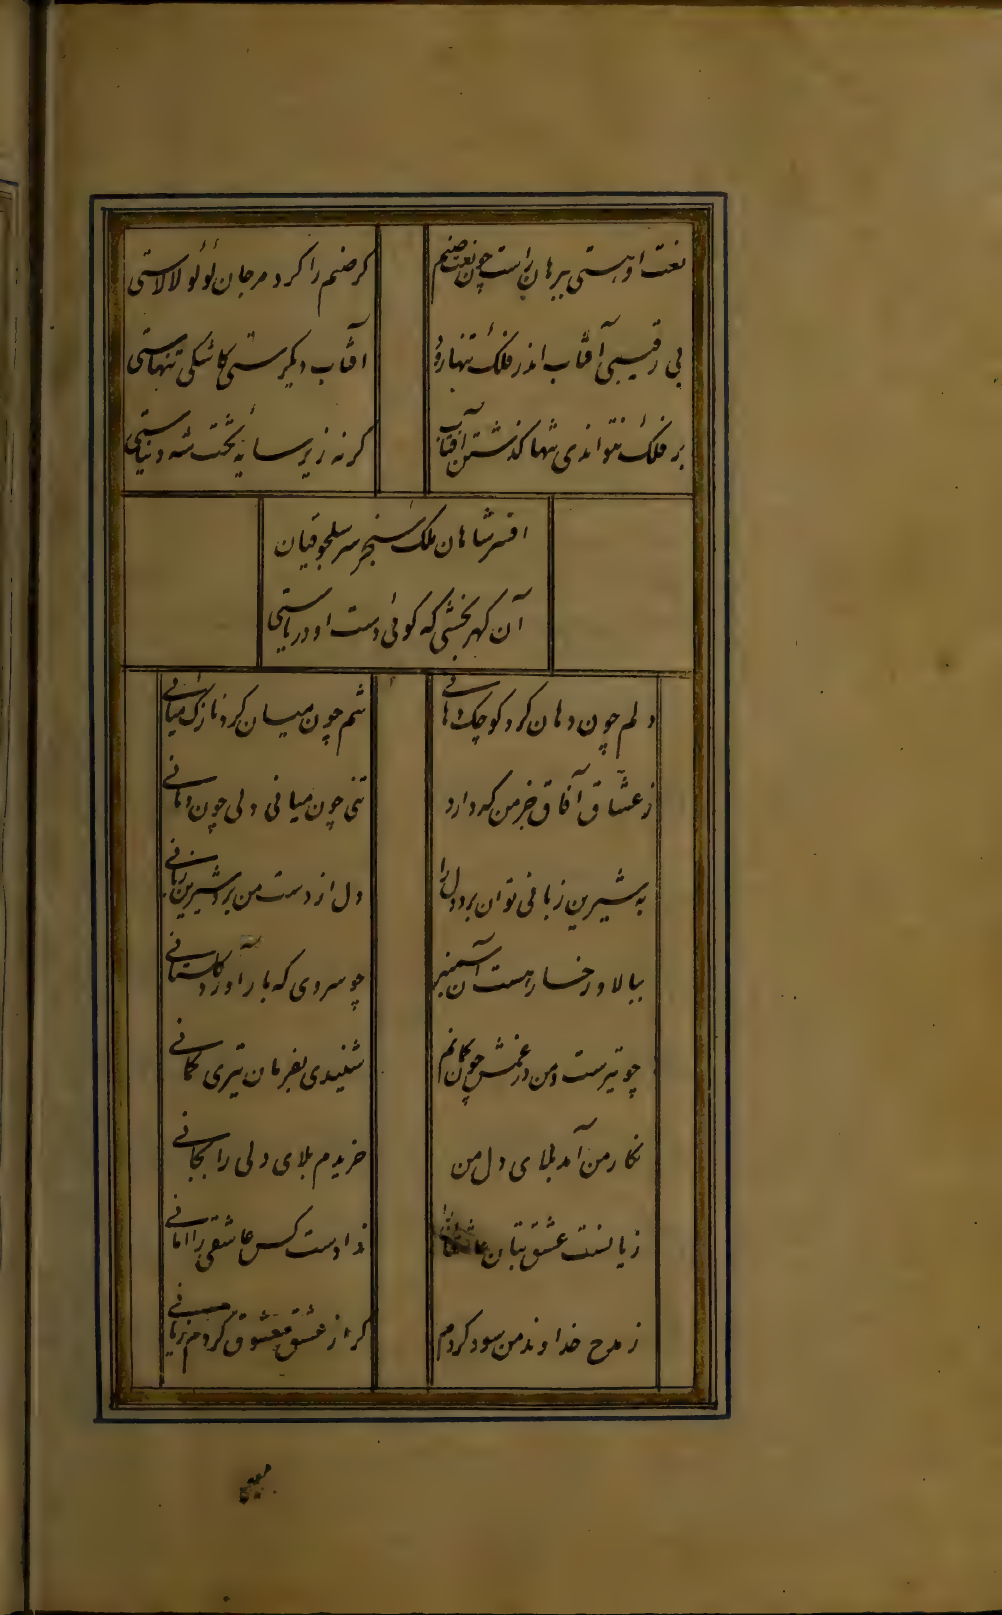 نعت او هستی ببرهان راست چون نعت صنم
کر صنم را کرد مرجان لؤلؤ لالاستی
بی رقیبی آفتاب اندر فلک تنها رود
آفتاب دیکرستی کاشکی تنهاستی
بر فلک نتواندی تنها کذشتن آفتاب
کرنه زیر سایهٔ تخت شه دنیاستی
افسر شاهان ملک سنجر سر سلجوقیان
آن کهربخشی که کوئی دست او دریاستی
دلم چون دهان کرد کوچک دهانی
تنم چون میان کرد نازک میانی
ز عشاق آفاق جز من که دارد
تنی چون میانی دلی چون دهانی
به شیرین زبانی توان برد دل را
دل از دست من برد شیرین زبانی
ببالا و رخسار هست آن سمنبر
چو سروی که بار آورد کلستانی
چو تیرست و من در غمش چون کمانم
شنیدی بفرمان تیری کمانی
نکار من آمد بلای دل من
خریدم بلای دلی را بجانی
زیانست عشق بتان عاشقانرا
ندادست کس عاشقی را امانی
ز مدح خداوند من سود کردم
کر از عشق معشوق کردم زیانی